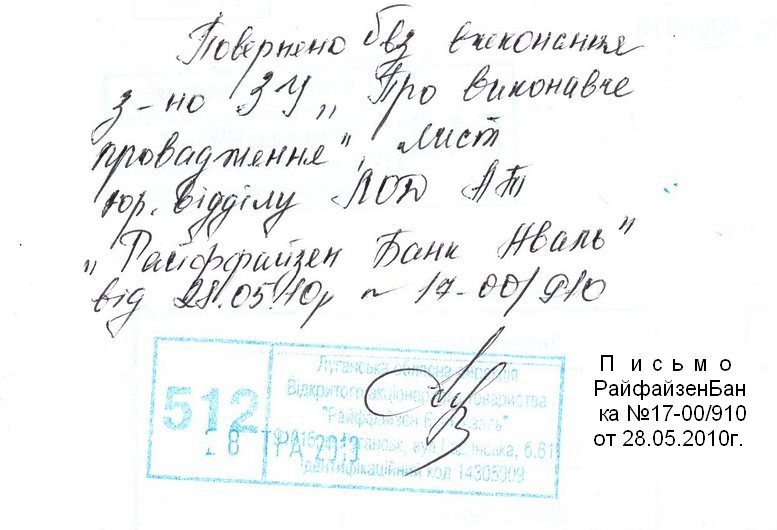 Повернено без виконання
з-но ЗУ „Про виконавче
провадження", лист
юр. відділу ЛОД АТ
„Райффайзен Банк Аваль"
від 28.05.10р ~ 17-00/910
512
28 ТРА 2010
Луганська обласна дирекція
Відкритого акціонерного товариства
"Райффайзен Банк Аваль"
Луганськ, вул. б.61
Ідентифікаційний код 14305909
Письмо
РайфайзенБан
ка №17-00/910
от 28.05.2010г.